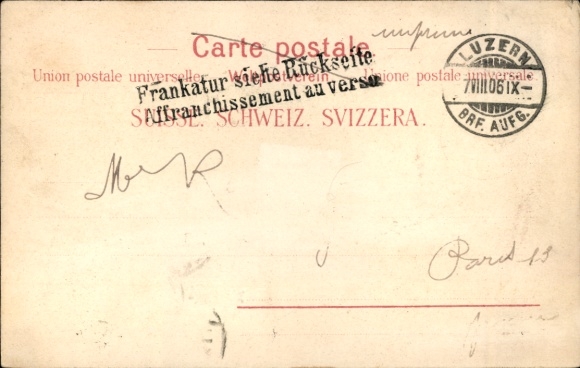 imprimé
Carte postale
Union postale universelle. Weltpostverein. Unione postale universale.
Frankatur siehe Rückseite
Affranchissement au verso
SUISSE. SCHWEIZ. SVIZZERA.
LUZERN
7VIII06IX-
BRF. AUFG.
Paris 13